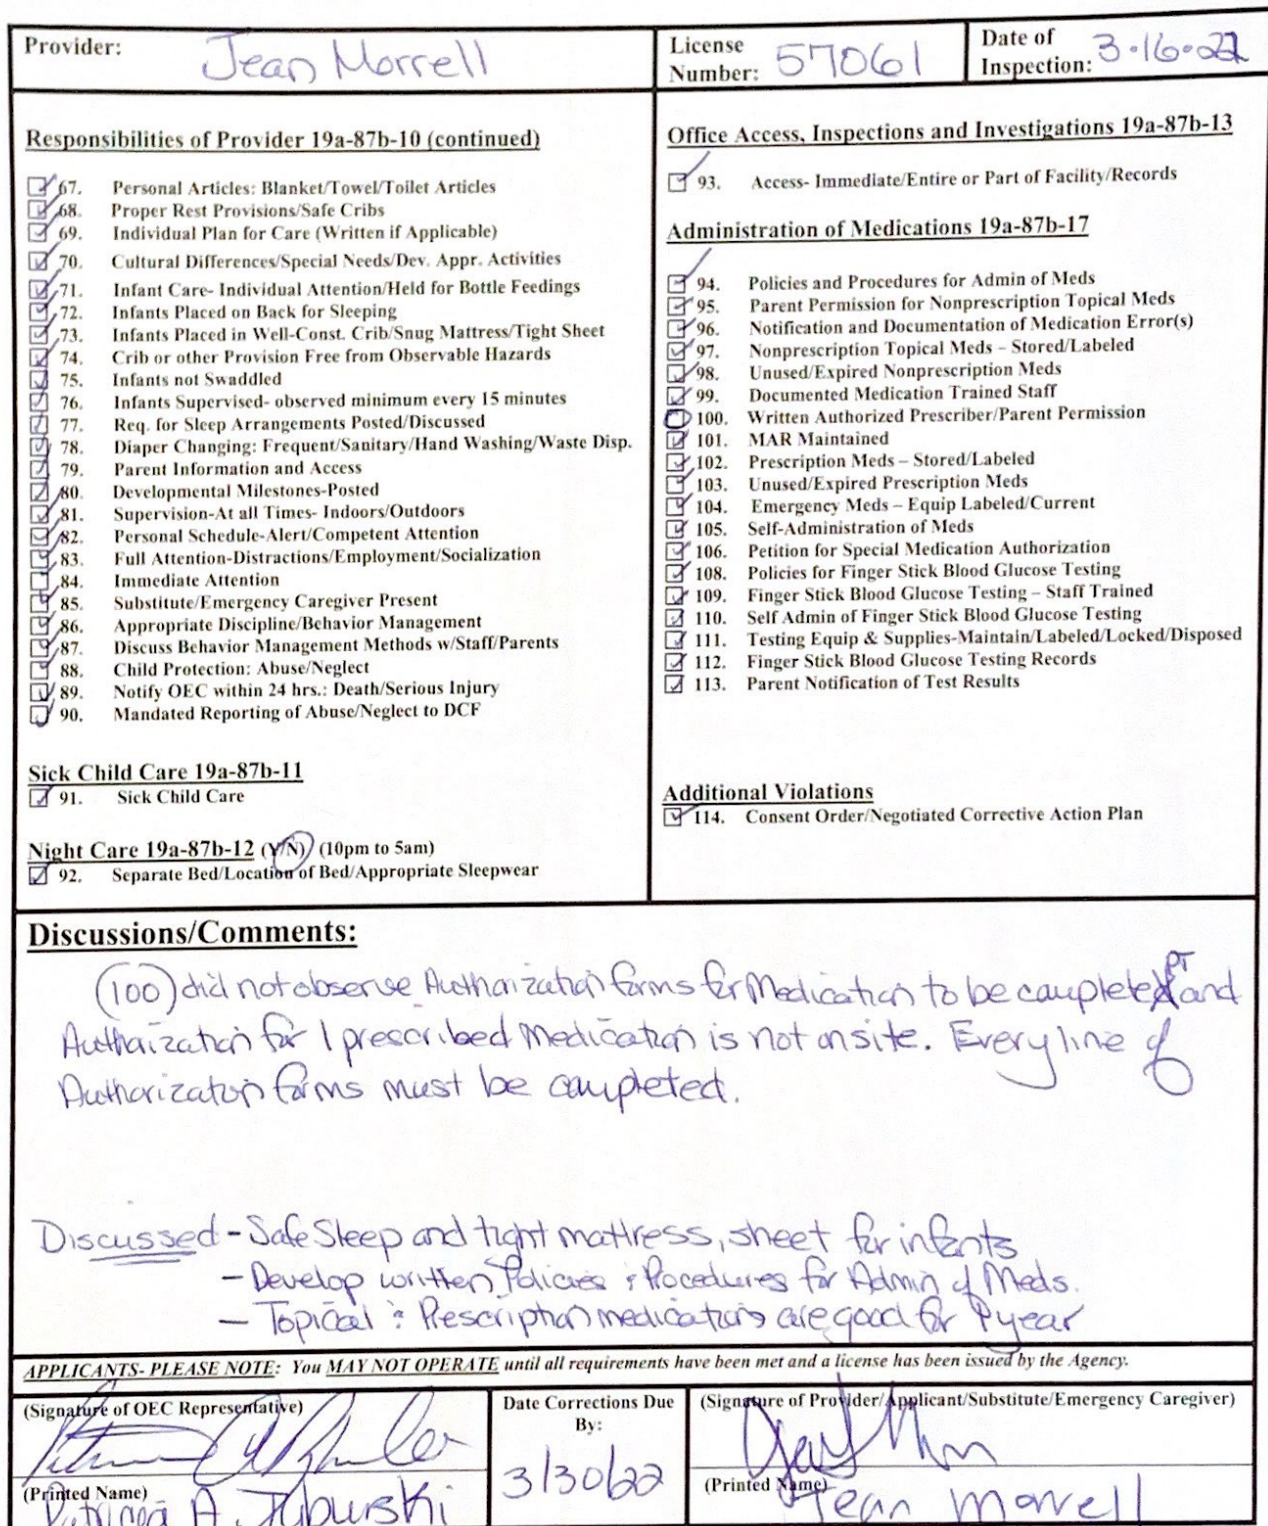 Provider: Jean Morrell
License Number: 57061
Date of Inspection: 3-16-22
Responsibilities of Provider 19a-87b-10 (continued)
67. Personal Articles: Blanket/Towel/Toilet Articles
68. Proper Rest Provisions/Safe Cribs
69. Individual Plan for Care (Written if Applicable)
70. Cultural Differences/Special Needs/Dev. Appr. Activities
71. Infant Care- Individual Attention/Held for Bottle Feedings
72. Infants Placed on Back for Sleeping
73. Infants Placed in Well-Const. Crib/Snug Mattress/Tight Sheet
74. Crib or other Provision Free from Observable Hazards
75. Infants not Swaddled
76. Infants Supervised- observed minimum every 15 minutes
77. Req. for Sleep Arrangements Posted/Discussed
78. Diaper Changing: Frequent/Sanitary/Hand Washing/Waste Disp.
79. Parent Information and Access
80. Developmental Milestones-Posted
81. Supervision-At all Times- Indoors/Outdoors
82. Personal Schedule-Alert/Competent Attention
83. Full Attention-Distractions/Employment/Socialization
84. Immediate Attention
85. Substitute/Emergency Caregiver Present
86. Appropriate Discipline/Behavior Management
87. Discuss Behavior Management Methods w/Staff/Parents
88. Child Protection: Abuse/Neglect
89. Notify OEC within 24 hrs.: Death/Serious Injury
90. Mandated Reporting of Abuse/Neglect to DCF
Sick Child Care 19a-87b-11
91. Sick Child Care
Night Care 19a-87b-12 (Y/N) (10pm to 5am)
92. Separate Bed/Location of Bed/Appropriate Sleepwear
Office Access, Inspections and Investigations 19a-87b-13
93. Access- Immediate/Entire or Part of Facility/Records
Administration of Medications 19a-87b-17
94. Policies and Procedures for Admin of Meds
95. Parent Permission for Nonprescription Topical Meds
96. Notification and Documentation of Medication Error(s)
97. Nonprescription Topical Meds – Stored/Labeled
98. Unused/Expired Nonprescription Meds
99. Documented Medication Trained Staff
100. Written Authorized Prescriber/Parent Permission
101. MAR Maintained
102. Prescription Meds – Stored/Labeled
103. Unused/Expired Prescription Meds
104. Emergency Meds – Equip Labeled/Current
105. Self-Administration of Meds
106. Petition for Special Medication Authorization
108. Policies for Finger Stick Blood Glucose Testing
109. Finger Stick Blood Glucose Testing – Staff Trained
110. Self Admin of Finger Stick Blood Glucose Testing
111. Testing Equip & Supplies-Maintain/Labeled/Locked/Disposed
112. Finger Stick Blood Glucose Testing Records
113. Parent Notification of Test Results
Additional Violations
114. Consent Order/Negotiated Corrective Action Plan
Discussions/Comments:
(100) did not observe Authorization forms for Medication to be completed and
Authorization for 1 prescribed Medication is not onsite. Every line of
Authorization forms must be completed.
Discussed - Safe Sleep and tight mattress, sheet for infants
- Develop written Policies & Procedures for Admin of Meds.
- Topical & Prescription medications are good for 1 year
APPLICANTS- PLEASE NOTE: You MAY NOT OPERATE until all requirements have been met and a license has been issued by the Agency.
(Signature of OEC Representative)
(Printed Name)
A.
Date Corrections Due
By:
3/30/22
(Signature of Provider/Applicant/Substitute/Emergency Caregiver)
(Printed Name)
Jean Morrell